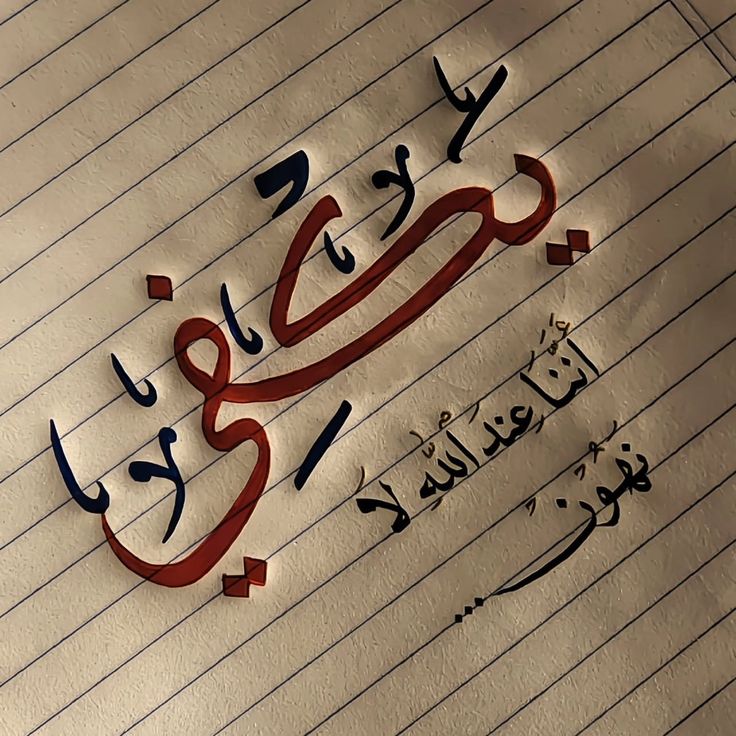 يكفي
أننا عند الله لا
نهون...